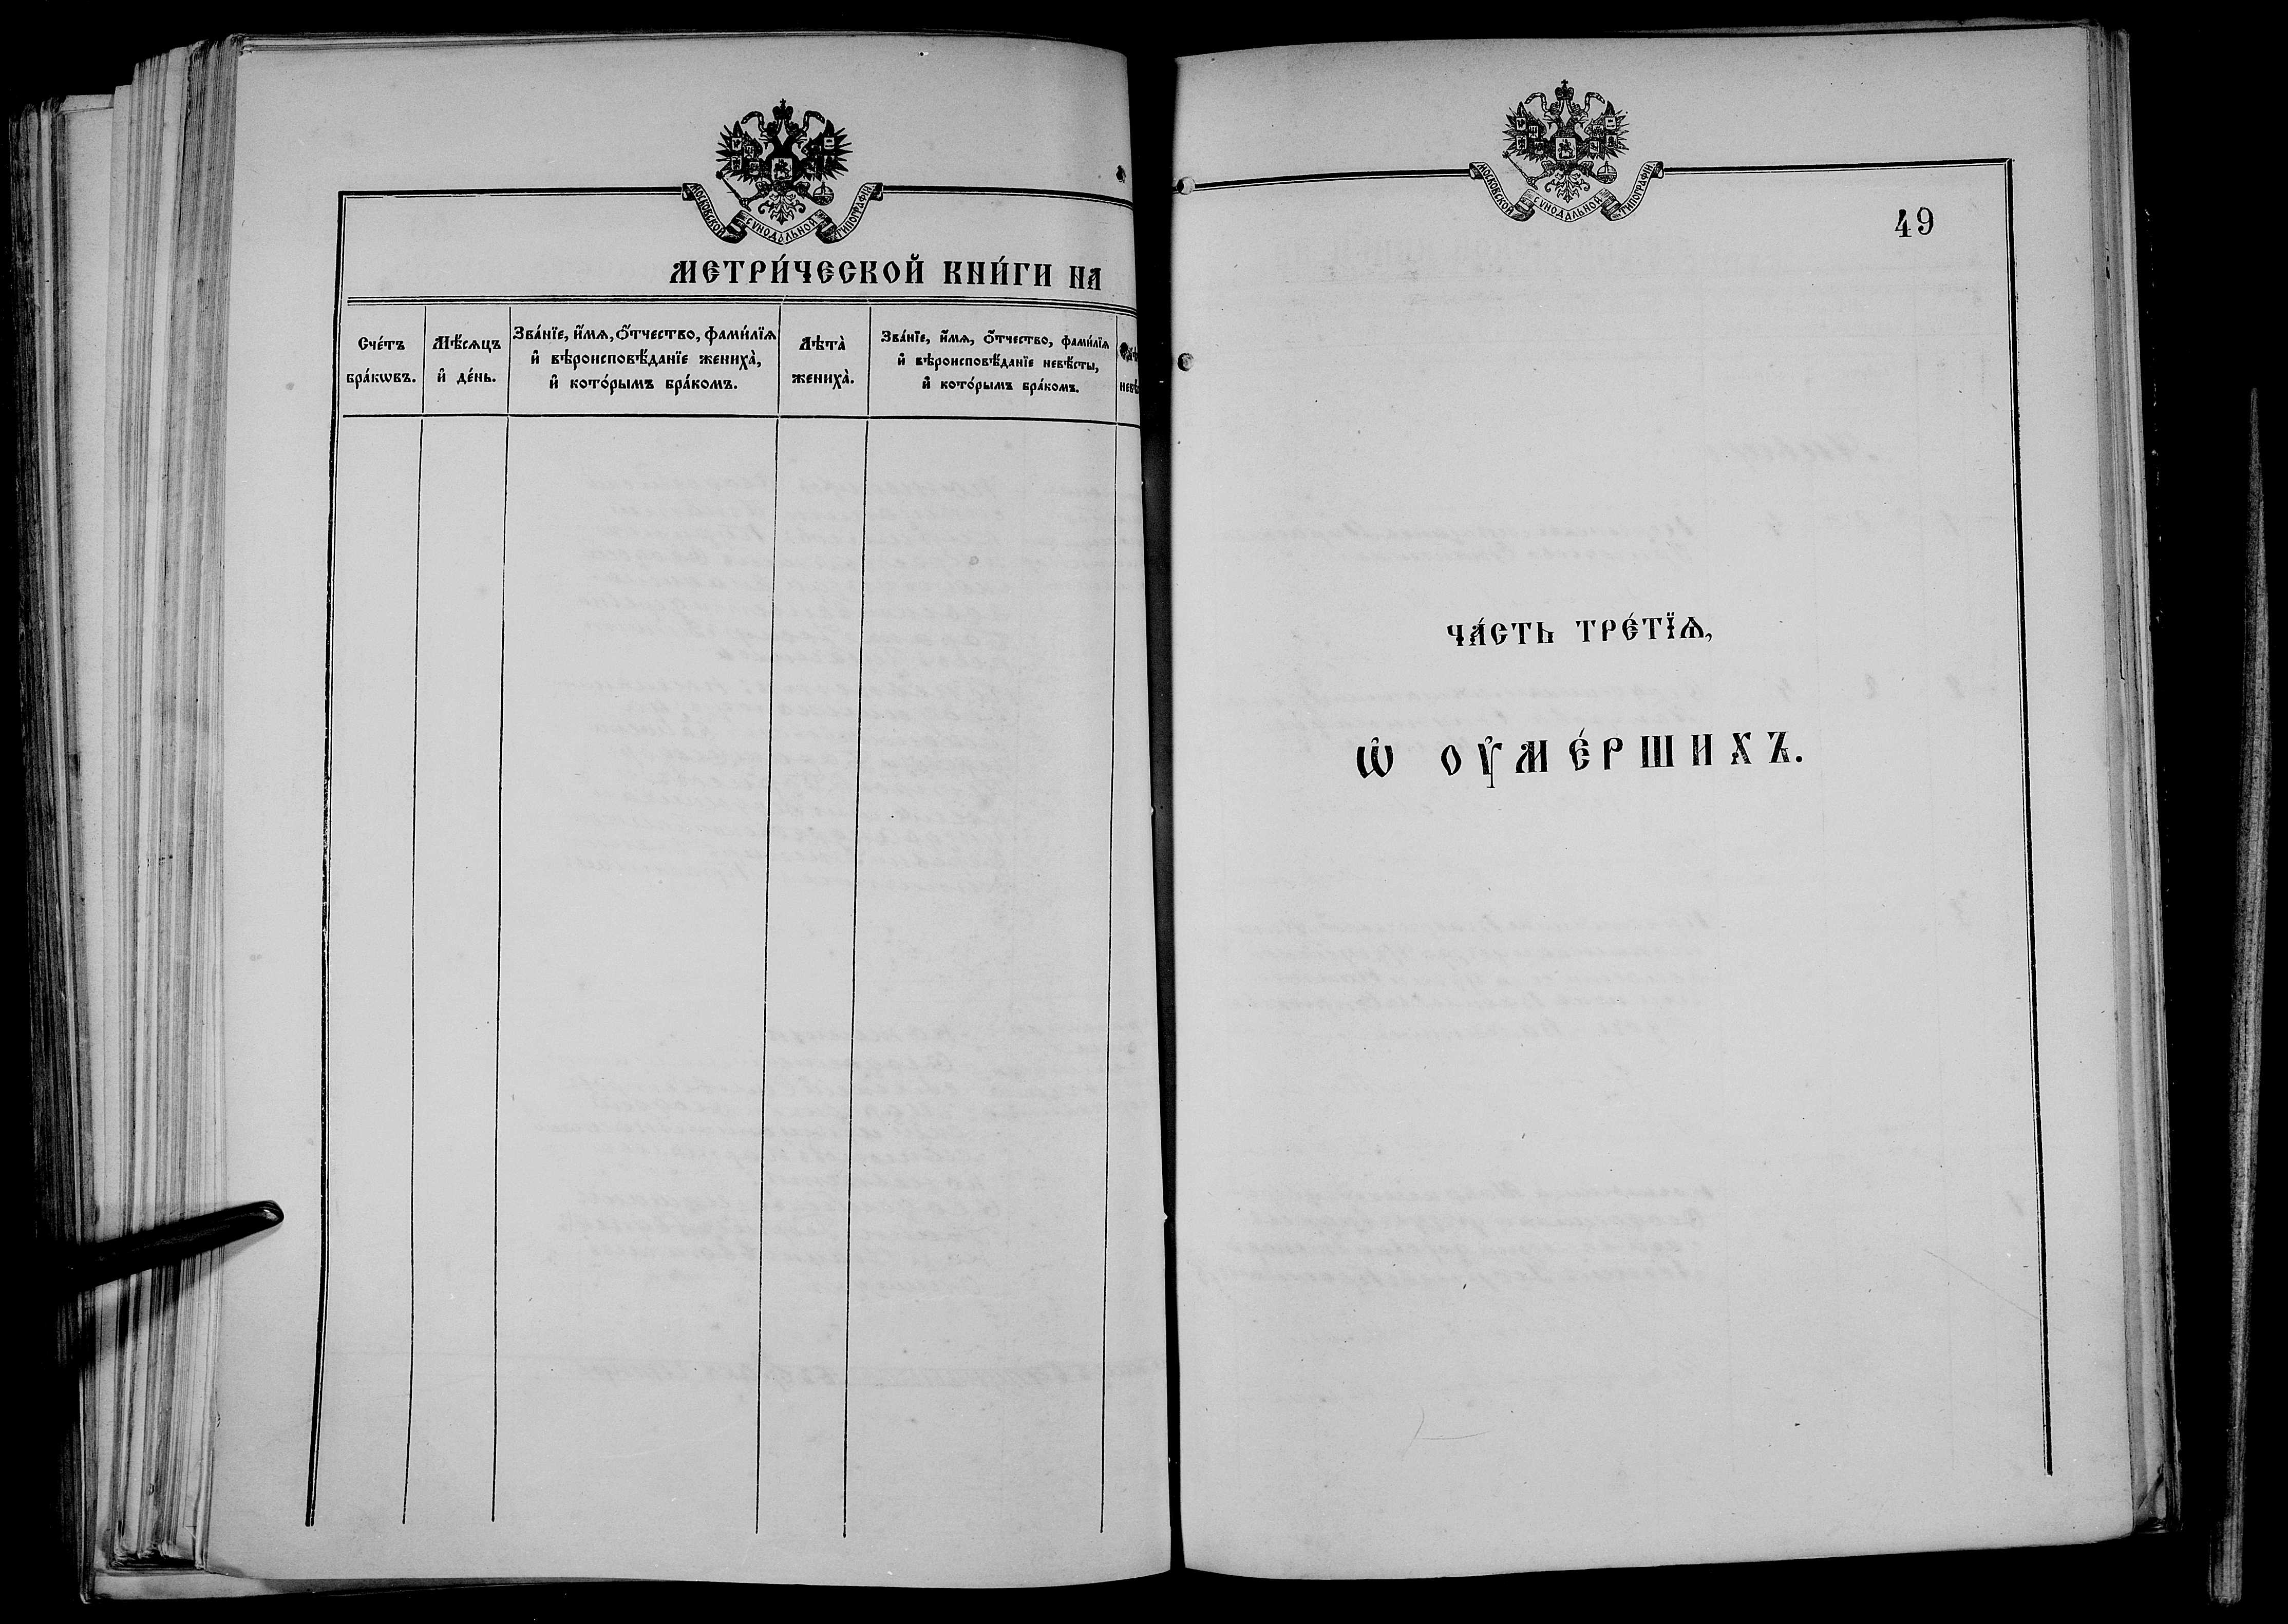 МОСКОВСКОЙ СѴНОДАЛЬНОЙ ТИПОГРАФІИ
МЕТРИ́ЧЕСКОЙ КНИ́ГИ НА
Сче́тъ бра́кѡвъ.
Мѣ́сѧцъ и҆ де́нь.
Зва́нїе, и҆́мѧ, ѻ҆́тчество, фами́лїѧ
и҆ вѣроисповѣ́данїе женихà,
и҆ кото́рымъ бра́комъ.
Лѣтà
женихà.
Зва́нїе, и҆́мѧ, ѻ҆́тчество, фами́лїѧ
и҆ вѣроисповѣ́данїе невѣ́сты,
и҆ кото́рымъ бра́комъ.
МОСКОВСКОЙ СѴНОДАЛЬНОЙ ТИПОГРАФІИ
49
ЧА́СТЬ ТРЕ́ТЇѦ,
Ѡ҆ ОУ҆МЕ́РШИХЪ.